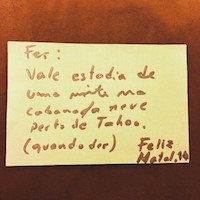 Fer:
Vale estadia de
uma noite na
cabana da neve
perto de Tahoe.
(quando der) Feliz
Natal, 14